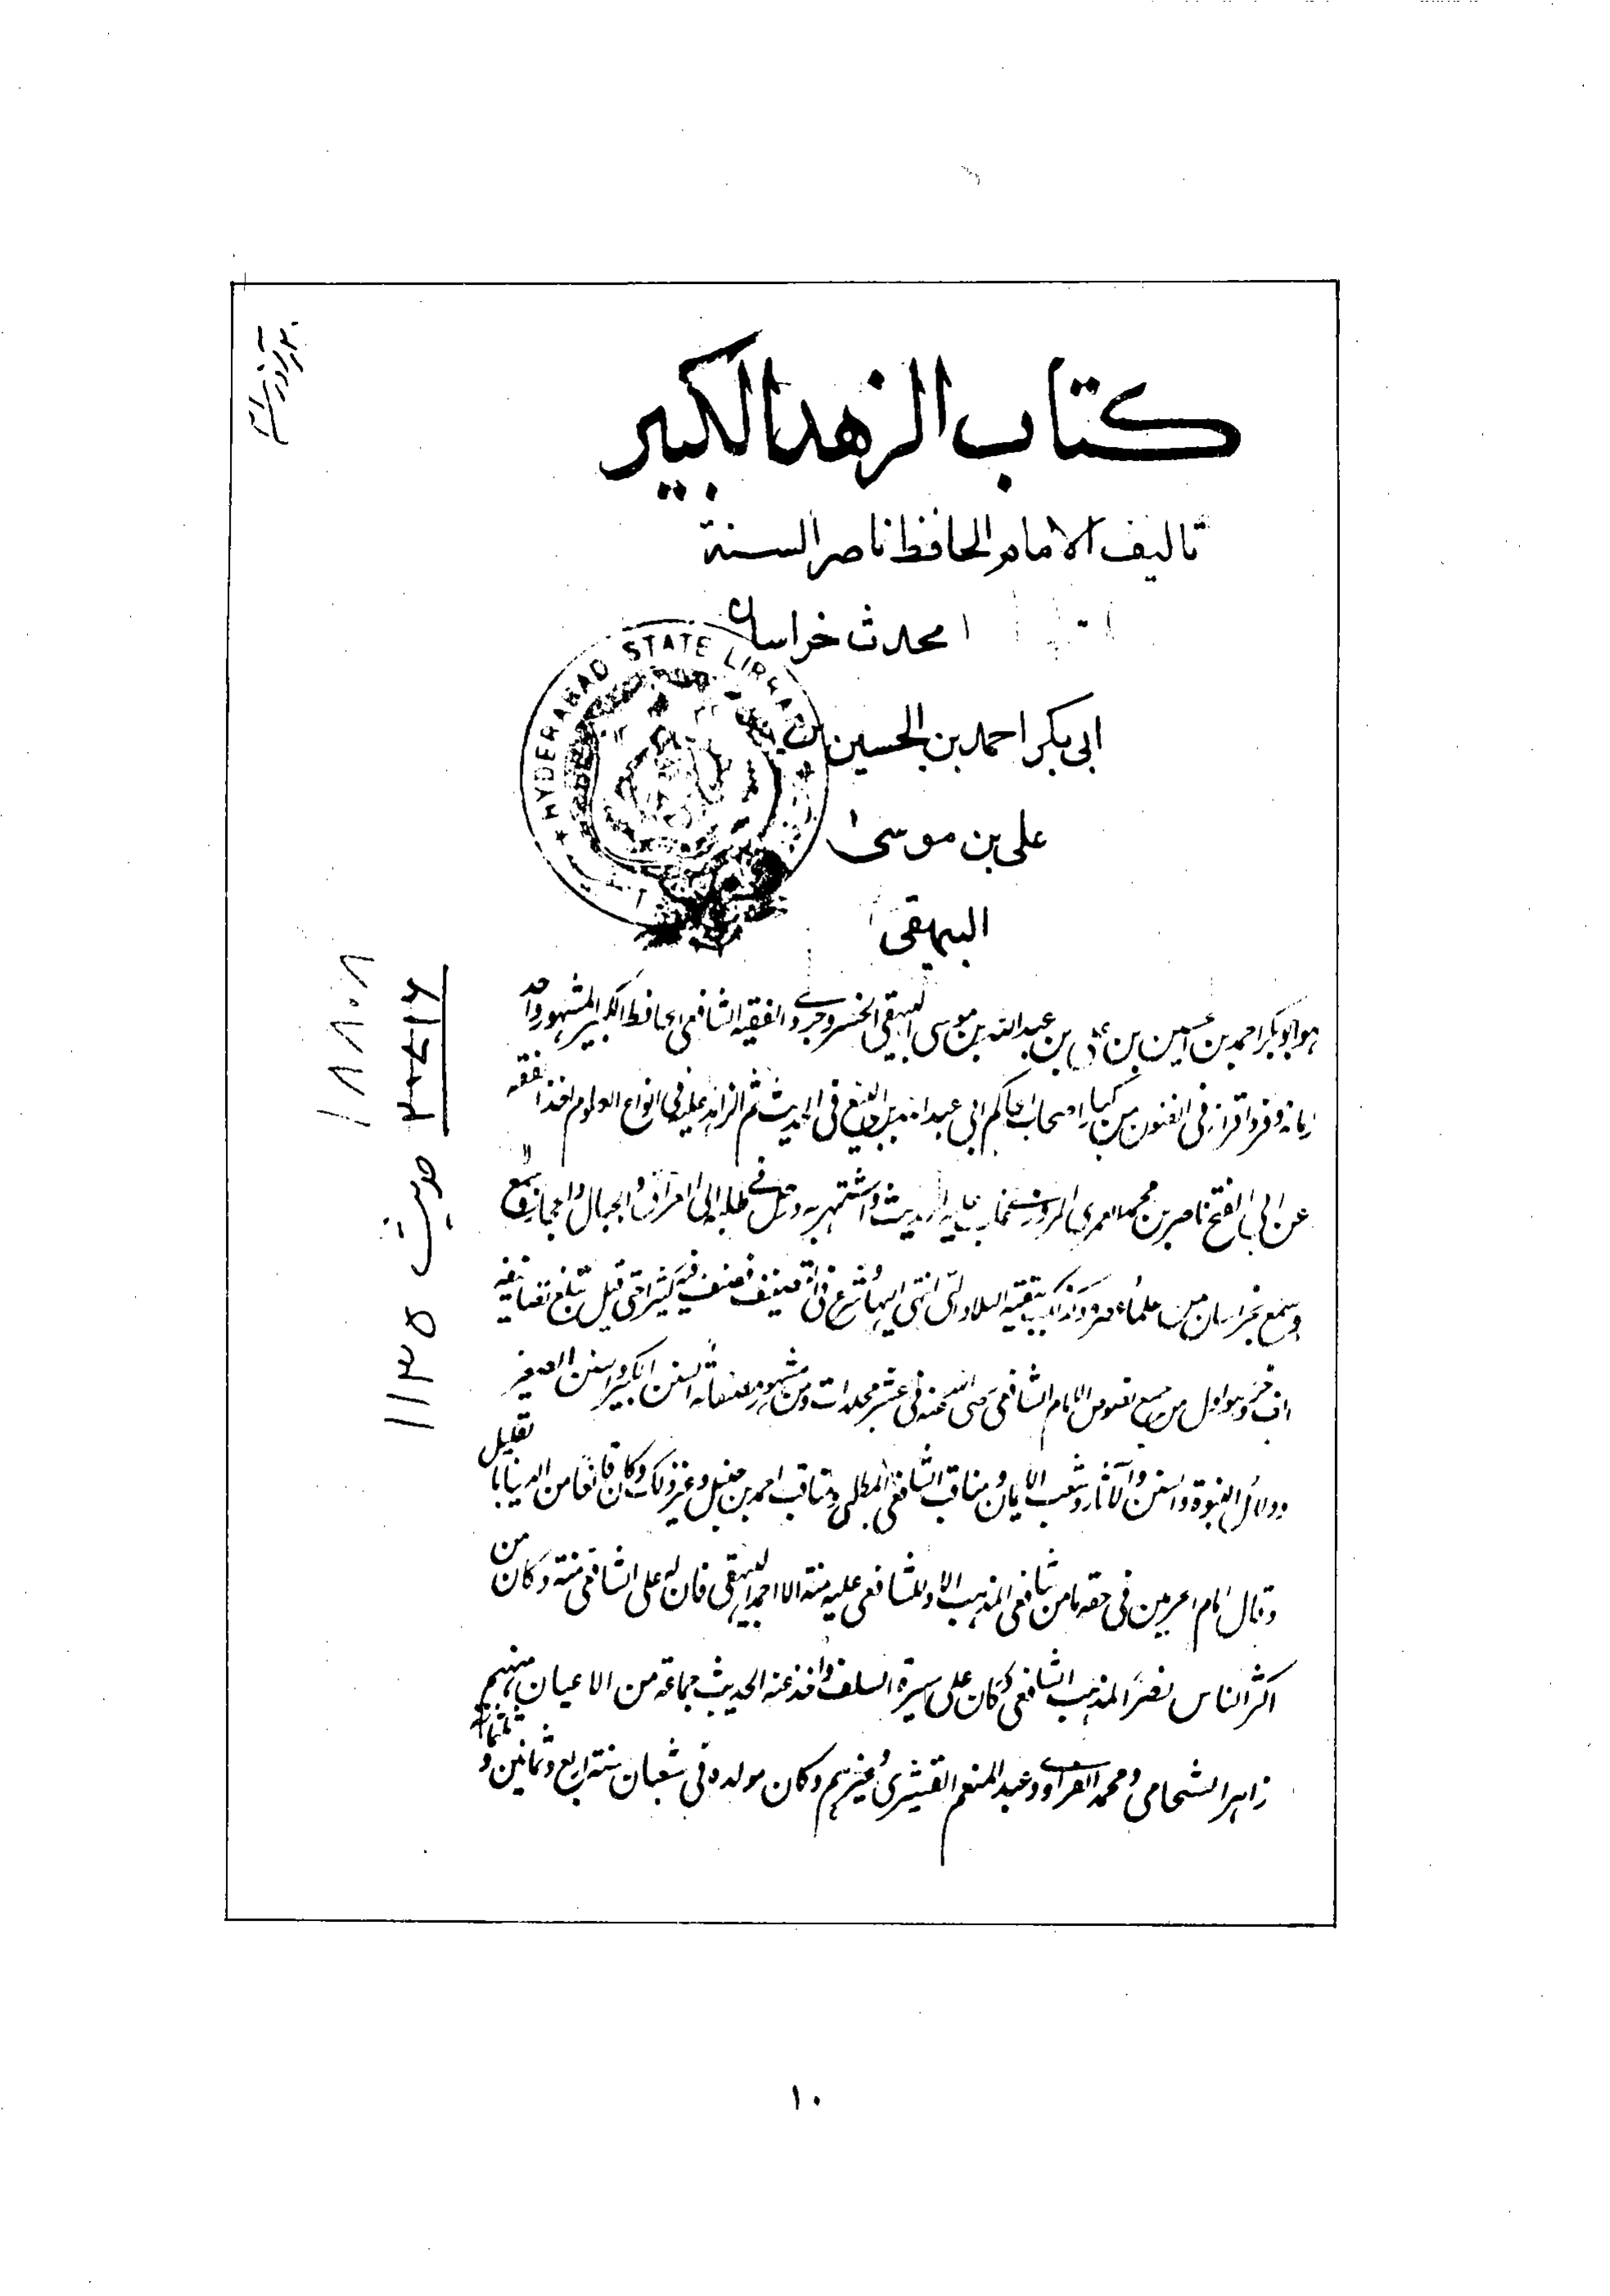 كتاب الزهد الكبير
تاليف الامام الحافظ ناصر السنة
محدث خراسان
HYDERABAD STATE LIBRARY
ابى بكر احمد بن الحسين بن
على بن موسىٰ
البيهقى
هو ابو بكر احمد بن الحسين بن على بن عبد الله بن موسى البيهقى الخسروجردى الفقيه الشافعى الحافظ الكبير المشهور واحد
زمانه وفرد اقرانه فى الفنون من كبار اصحاب الحاكم ابى عبد الله بن البيع فى الحديث ثم الزائد عليه فى انواع العلوم اخذ الفقه
عن ابى الفتح ناصر بن محمد العمرى المروزى غلب عليه الحديث واشتهر به ورحل فى طلبه الى العراق والجبال والحجاز وسمع
وسمع بخراسان من علماء عصره وكذلك بقية البلاد التى انتهى اليها وشرع فى التصنيف فصنف فيه كثيرا حتى قيل تبلغ تصانيفه
الف جزء وهو اول من جمع نصوص الامام الشافعى رضى الله عنه فى عشر مجلدات ومن مشهور مصنفاته السنن الكبير والسنن الصغير
ودلائل النبوة والسنن والآثار وشعب الايمان ومناقب الشافعى المطلبى ومناقب احمد بن حنبل وغير ذلك وكان قانعا من الدنيا بالقليل
وقال امام الحرمين فى حقه ما من شافعى المذهب الا وللشافعى عليه منة الا احمد البيهقى فان له على الشافعى منة وكان من
اكثر الناس نصرا لمذهب الشافعى وكان على سيرة السلف واخذ عنه الحديث جماعة من الاعيان منهم
زاهر الشحامى ومحمد الفراوى وعبد المنعم القشيرى وغيرهم وكان مولده فى شعبان سنة اربع وثمانين وثلثمائة
حديث ١١٣٥
١٨٨٠٨
١٠